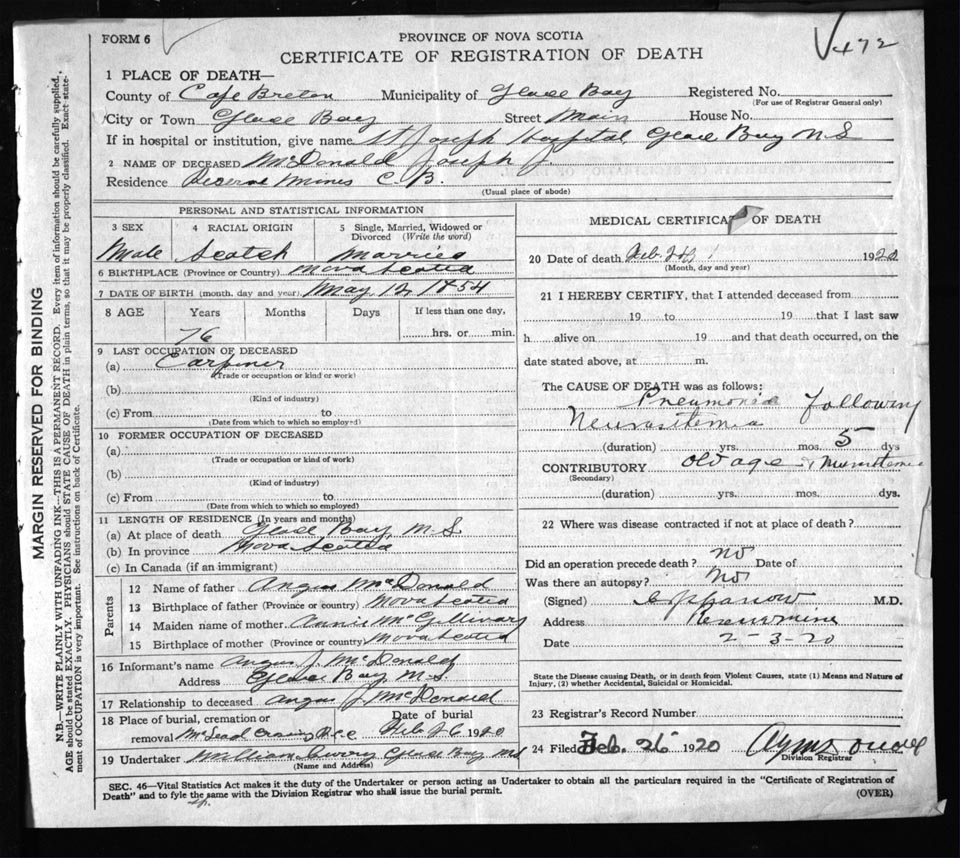 FORM 6
PROVINCE OF NOVA SCOTIA
CERTIFICATE OF REGISTRATION OF DEATH
√472
1 PLACE OF DEATH—
County of Cape Breton Municipality of Glace Bay Registered No.
(For use of Registrar General only)
City or Town Glace Bay Street Main House No.
If in hospital or institution, give name St Joseph Hospital, Glace Bay N S
2 NAME OF DECEASED McDonald Joseph J.
Residence Reserve Mines C. B.
(Usual place of abode)
PERSONAL AND STATISTICAL INFORMATION
3 SEX 4 RACIAL ORIGIN 5 Single, Married, Widowed or Divorced (Write the word)
Male Scotch Married
6 BIRTHPLACE (Province or Country) Nova Scotia
7 DATE OF BIRTH (month, day and year) May 12, 1854
8 AGE Years Months Days If less than one day,
76 hrs. or min.
9 LAST OCCUPATION OF DECEASED
(a) Carpiner
(Trade or occupation or kind or work)
(b)
(Kind of industry)
(c) From to
(Date from which to which so employed)
10 FORMER OCCUPATION OF DECEASED
(a)
(Trade or occupation or kind of work)
(b)
(Kind of industry)
(c) From to
(Date from which to which so employed)
11 LENGTH OF RESIDENCE (In years and months)
(a) At place of death Glace Bay, N. S.
(b) In province Nova Scotia
(c) In Canada (if an immigrant)
Parents
12 Name of father Angus McDonald
13 Birthplace of father (Province or country) Nova Scotia
14 Maiden name of mother Annie McGillivary
15 Birthplace of mother (Province or country) Nova Scotia
16 Informant's name Angus J. McDonald
Address Glace Bay, N.S.
17 Relationship to deceased Angus J McDonald
18 Place of burial, cremation or removal Date of burial
McLeod Crossing Feb 26 1920
19 Undertaker William Curry Glace Bay NS
(Name and Address)
MEDICAL CERTIFICATE OF DEATH
20 Date of death Feb. 19
(Month, day and year)
21 I HEREBY CERTIFY, that I attended deceased from
19 to 19 that I last saw
h alive on 19 and that death occurred, on the
date stated above, at m.
The CAUSE OF DEATH was as follows:
Pneumonia following
(duration) yrs. mos. 5 dys
CONTRIBUTORY old age
(Secondary)
(duration) yrs. mos. dys.
22 Where was disease contracted if not at place of death?
Did an operation precede death? No Date of
Was there an autopsy? No
(Signed) M.D.
Address
Date 2-3-20
State the Disease causing Death, or in death from Violent Causes, state (1) Means and Nature of
Injury, (2) whether Accidental, Suicidal or Homicidal.
23 Registrar's Record Number
24 Filed Feb. 26 1920
Division Registrar
SEC. 46—Vital Statistics Act makes it the duty of the Undertaker or person acting as Undertaker to obtain all the particulars required in the "Certificate of Registration of
Death" and to fyle the same with the Division Registrar who shall issue the burial permit.
(OVER)
MARGIN RESERVED FOR BINDING
N.B.—WRITE PLAINLY WITH UNFADING INK—THIS IS A PERMANENT RECORD. Every item of information should be carefully supplied.
AGE should be stated EXACTLY. PHYSICIANS should STATE CAUSE OF DEATH in plain terms, so that it may be properly classified. Exact state-
ment of OCCUPATION is very important. See instructions on back of Certificate.